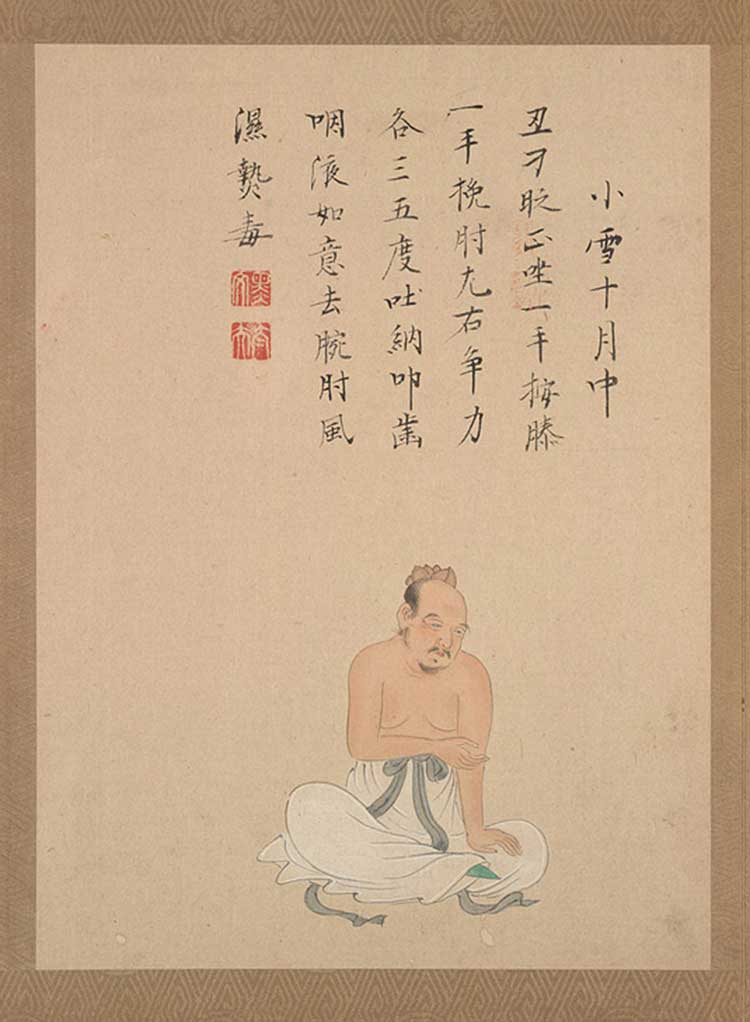 小雪十月中
丑刁正坐一手按膝
一手挽肘左右争力
各三五度吐納叩歯
咽液如意去腕肘風
濕熱毒